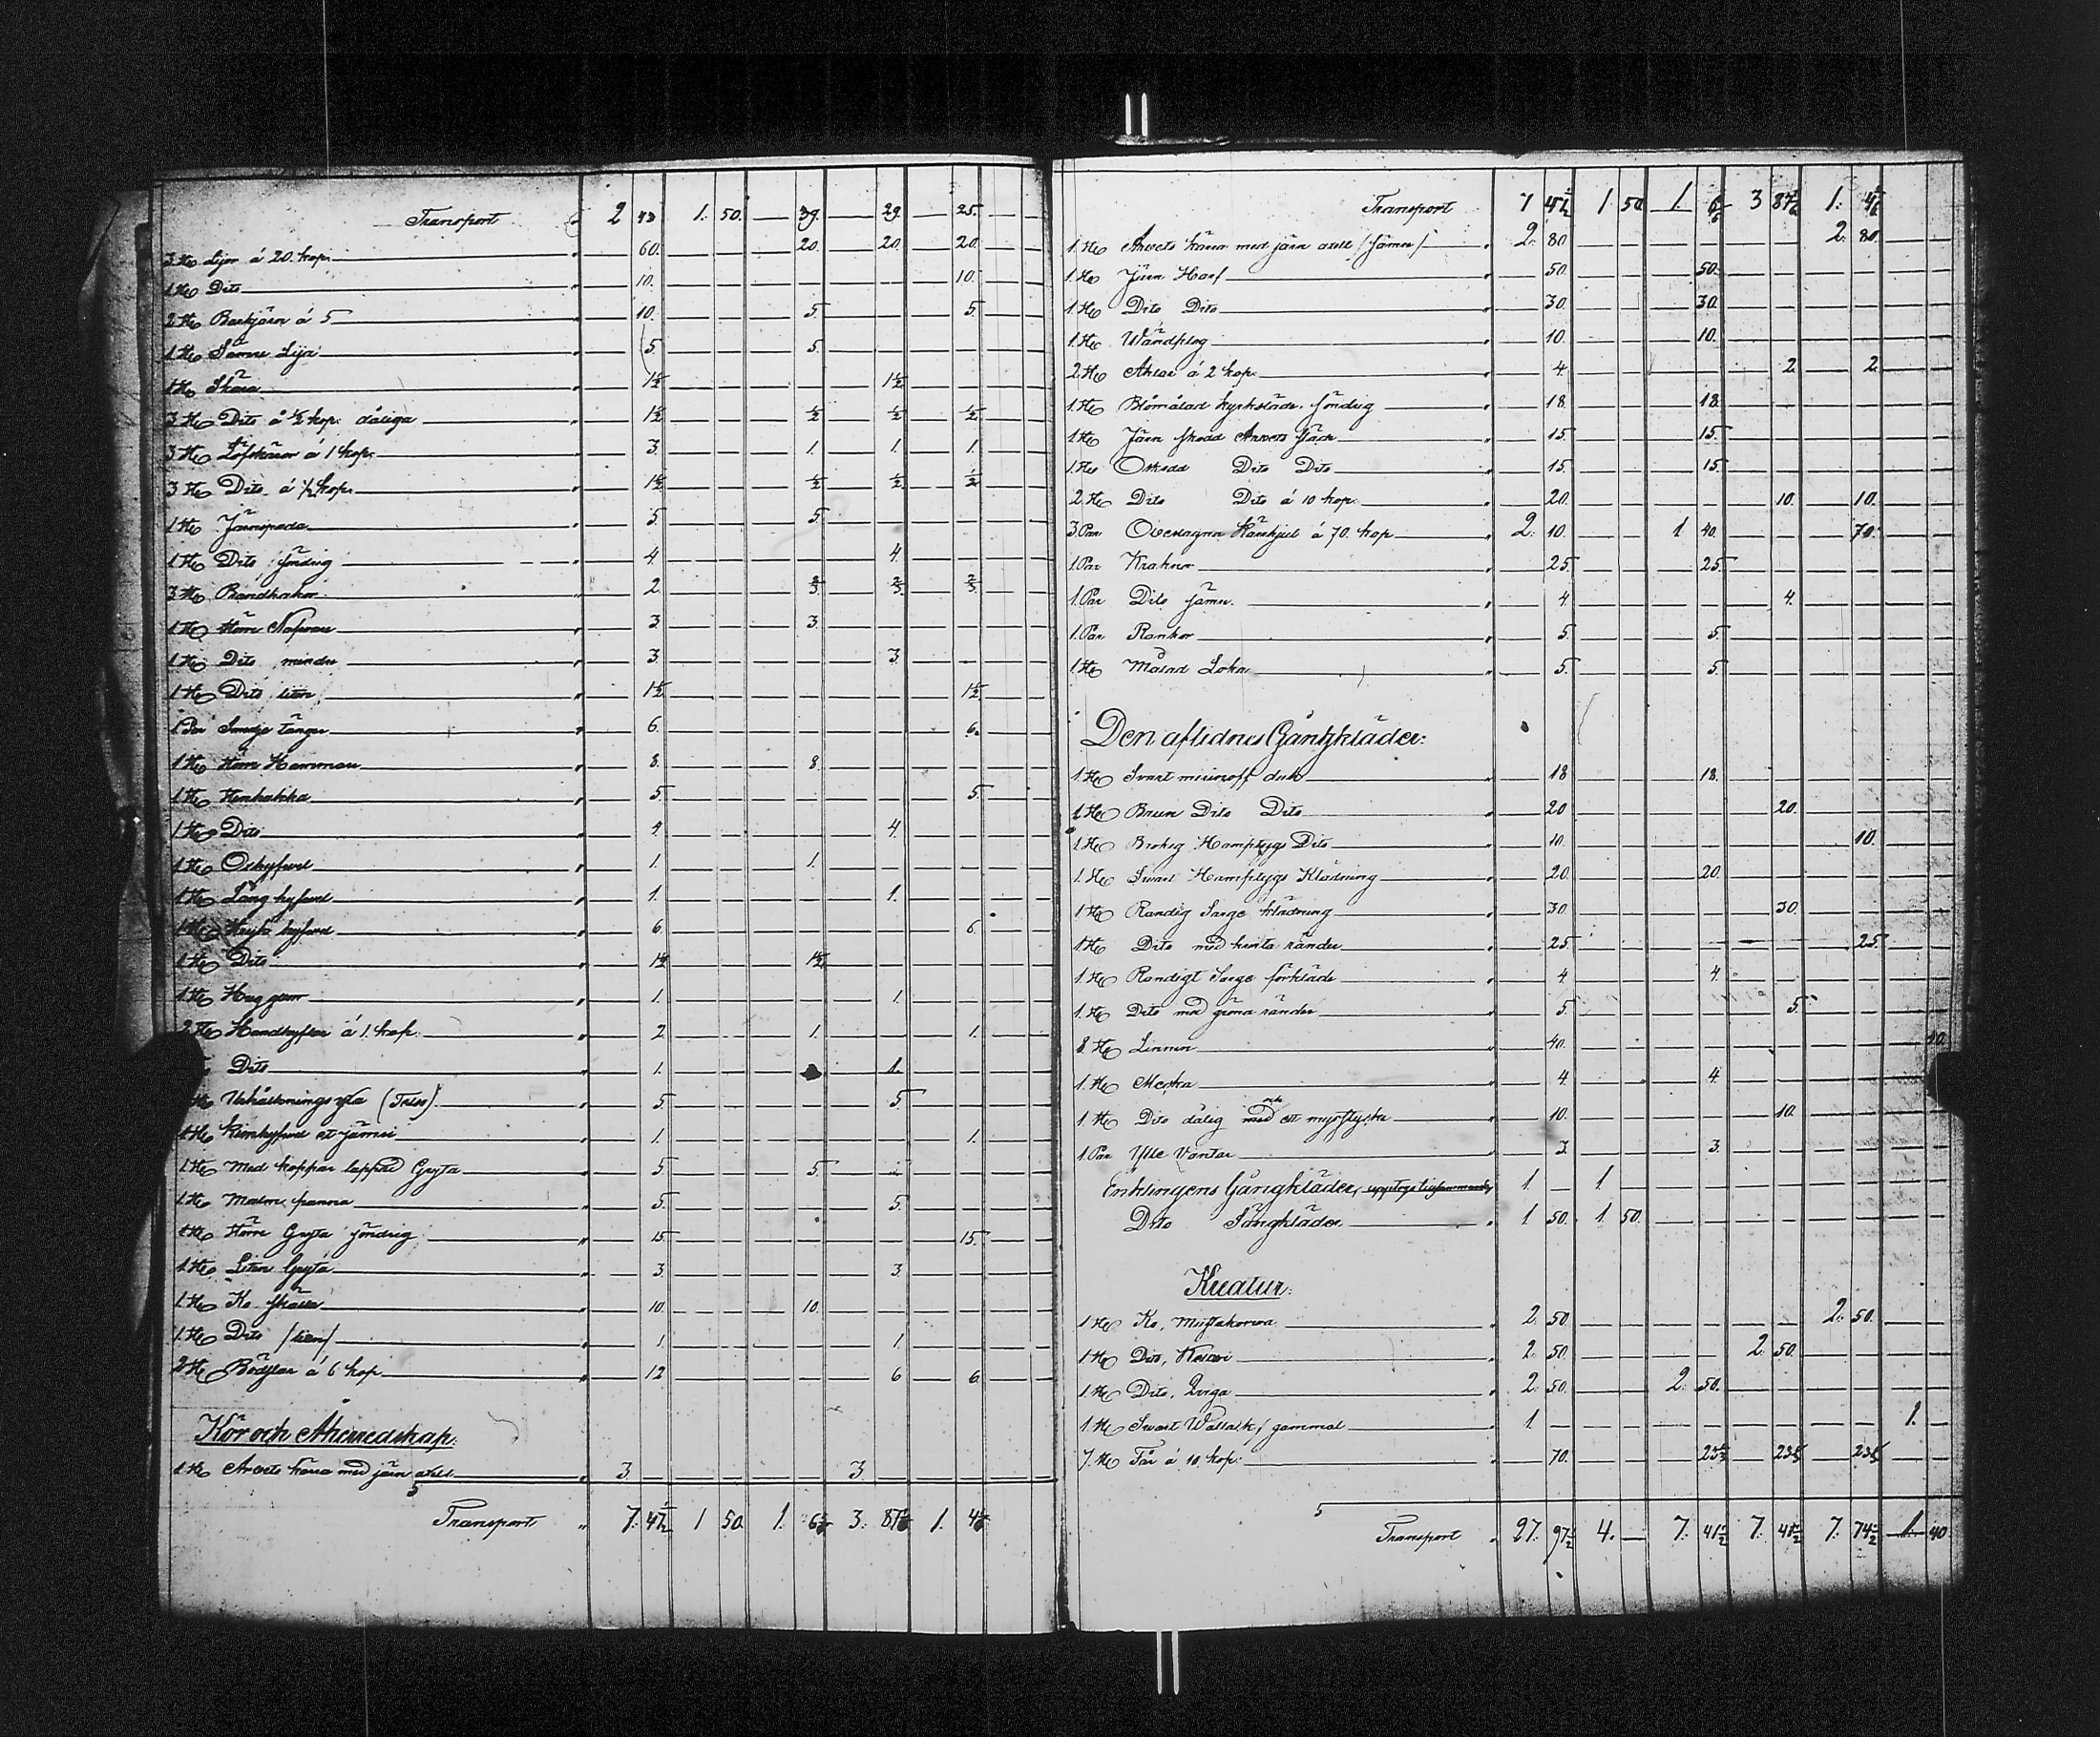 Transport 2 43 1. 50. — 39. — 29. — 25.
3 St. Lijor á 20. kop. 60. 20. 20. 20.
1 St. Dito 10. 10.
2 St. Barkjärn á 5 10. 5. 5.
1 St. Sämre Lija 5. 5.
1 St. Skära 1½ 1½
3 St. Dito á ½ kop. dåliga 1½ ½ ½ ½
3 St. Löfskäror á 1 kop. 3. 1. 1. 1.
3 St. Dito á ½ kop. 1½ ½ ½ ½
1 St. Järnspada 5. 5.
1 St. Dito söndrig 4. 4.
3 St. Brandhakor 2. ⅔ ⅔ ⅔
1 St. Större Nafvare 3. 3.
1 St. Dito mindre 3. 3.
1 St. Dito liten 1½ 1½
1 Par Smedje tänger 6. 6.
1 St. Större Hammare 8. 8.
1 St. Stenhacka 5. 5.
1 St. Dito 4. 4.
1 St. 1. 1.
1 St. Lång hyfvel 1. 1.
1 St. hyfvel 6. 6.
1 St. Dito 1½ 1½
1 St. Huggjern 1. 1.
2 St. Handhyflar á 1. kop. 2. 1. 1.
Dito 1. 1.
Urhålknings yxa (Telso) 5. 5.
1 St. Simhyfvel et jämri 1. 1.
1 St. Med koppar lappad Gryta 5. 5.
1 St. Malm panna 5. 5.
1 St. Större Gryta söndrig 15 15.
1 St. Liten Gryta 3. 3
1 St. Ko skälla 10. 10.
1 St. Dito /liten/ 1. 1.
2 St. Bödslar á 6 kop. 12 6 6.
Kör och Åkerredskap.
1 St. Arbets kärra med järn axell 3 3
Transport 7. 47½ 1 50. 1. 6⅙ 3. 87⅙ 1. 4⅙
Transport 7 47½ 1 50 1. 6⅙ 3 87⅙ 1. 4⅙
1. St. Arbets kärra med järn axell /sämre/ 2. 80. 2. 80.
1. St. Järn Harf 50. 50.
1. St. Dito Dito 30. 30.
1. St. Wändplog 10. 10.
2. St. Ahrar á 2 kop. 4. 2 2.
1. St. Blåmålad kyrksläde. söndrig 18. 18.
1. St. Järn skodd Arbets släde 15. 15.
1. St. Oskodd Dito Dito 15. 15.
2. St. Dito Dito á 10 kop. 20. 10. 10.
3. Par Obeslagna kärrhjul á 70. kop 2. 10. 1 40. 70.
1. Par 25. 25.
1. Par Dito sämre. 4. 4.
1. Par Rankor 5. 5.
1. St. Målad Loka 5. 5.
Den aflidnes Gångkläder:
1. St. Svart duk 18 18.
1. St. Brun Dito Dito 20 20.
1. St. Brokig Hamptygs Dito 10. 10.
1. St. Svart Hamptygs Klädning 20. 20.
1 St. Randig Sarge klädning 30. 30.
1 St. Dito med hvita ränder 25. 25.
1. St. Randigt Sarge förkläde 4 4.
1. St. Dito med gröna ränder 5. 5.
8 St. Linnen 40. 40.
1. St. Mertza 4. 4.
1. St. Dito dålig och med ett 10. 10.
1. Par Ylle Vantar 3. 3.
Enklingens Gångkläder, 1 — 1.
Dito Sängkläder. 1 50. 1 50.
Kreatur:
1 St. Ko, Mustakorva 2. 50. 2. 50.
1 St. Dito, 2. 50. 2. 50.
1. St. Dito, Qviga 2. 50. 2. 50.
1 St. Svart Wallack, gammal 1. 1. —
7. St. Får á 10. kop. 70. 23⅓ 23⅓ 23⅓
Transport 27. 97½ 4. — 7. 41½ 7. 41½ 7. 74½ 1. 40